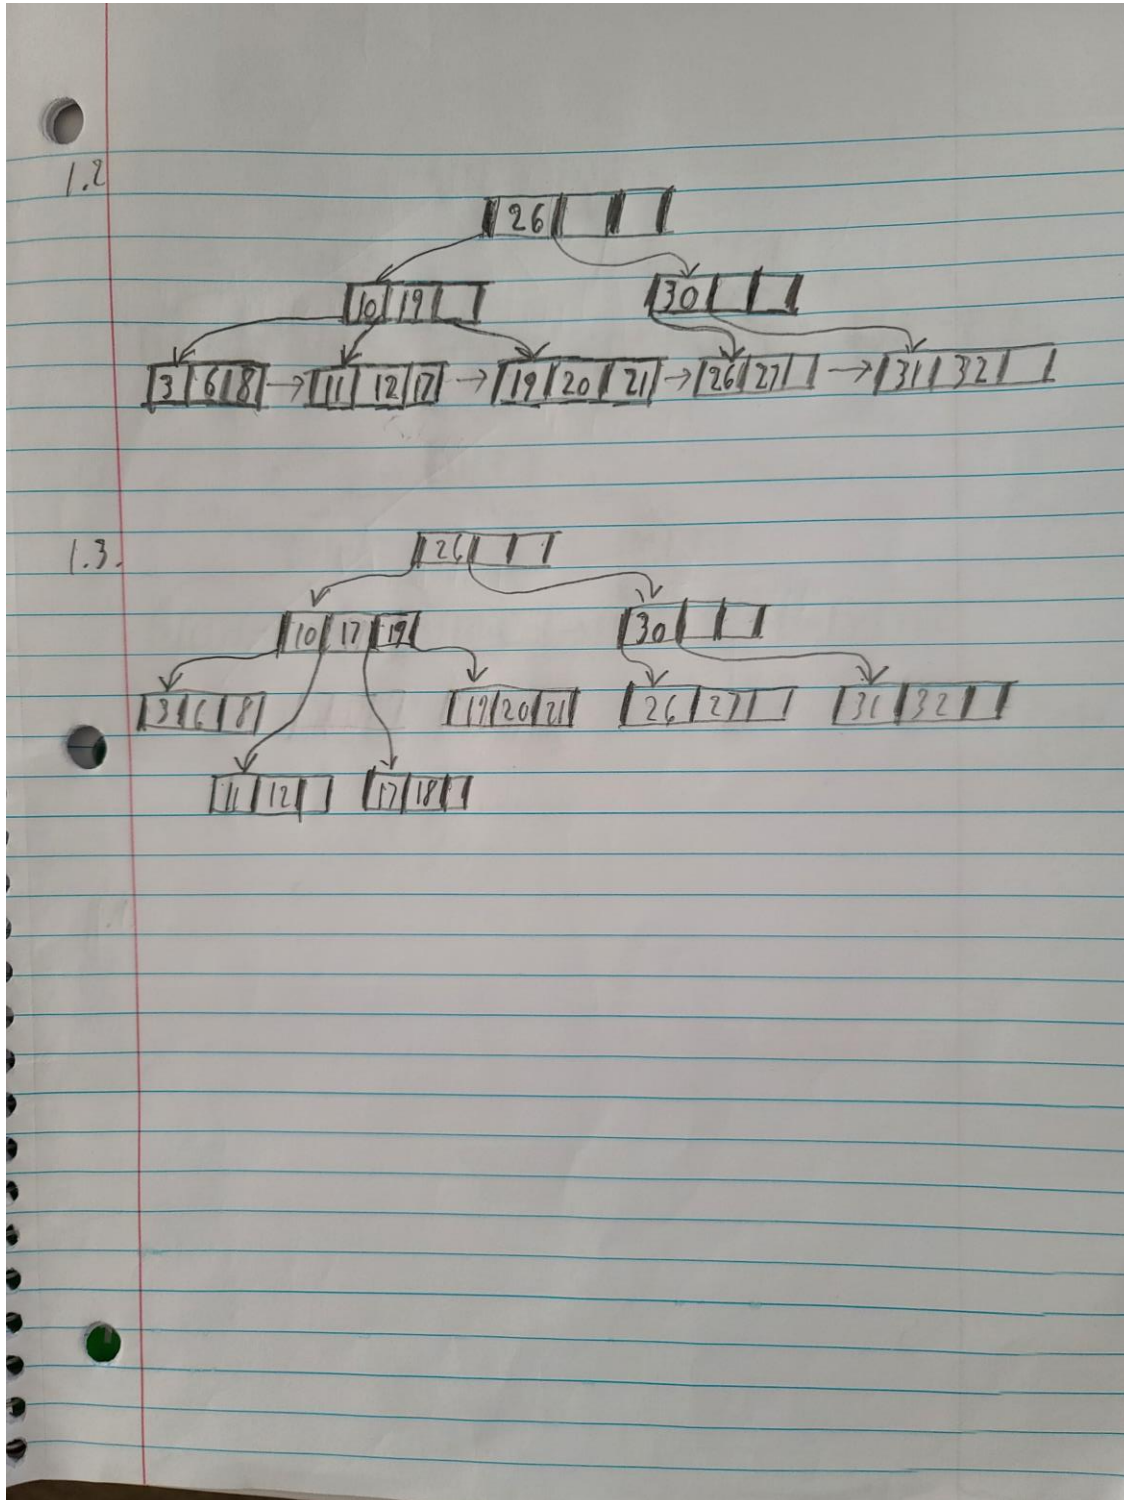 1.2
26
10 19 30
3 6 8 → 11 12 17 → 19 20 21 → 26 27 → 31 32
1.3.
26
10 17 19 30
3 6 8 19 20 21 26 27 31 32
11 12 17 18